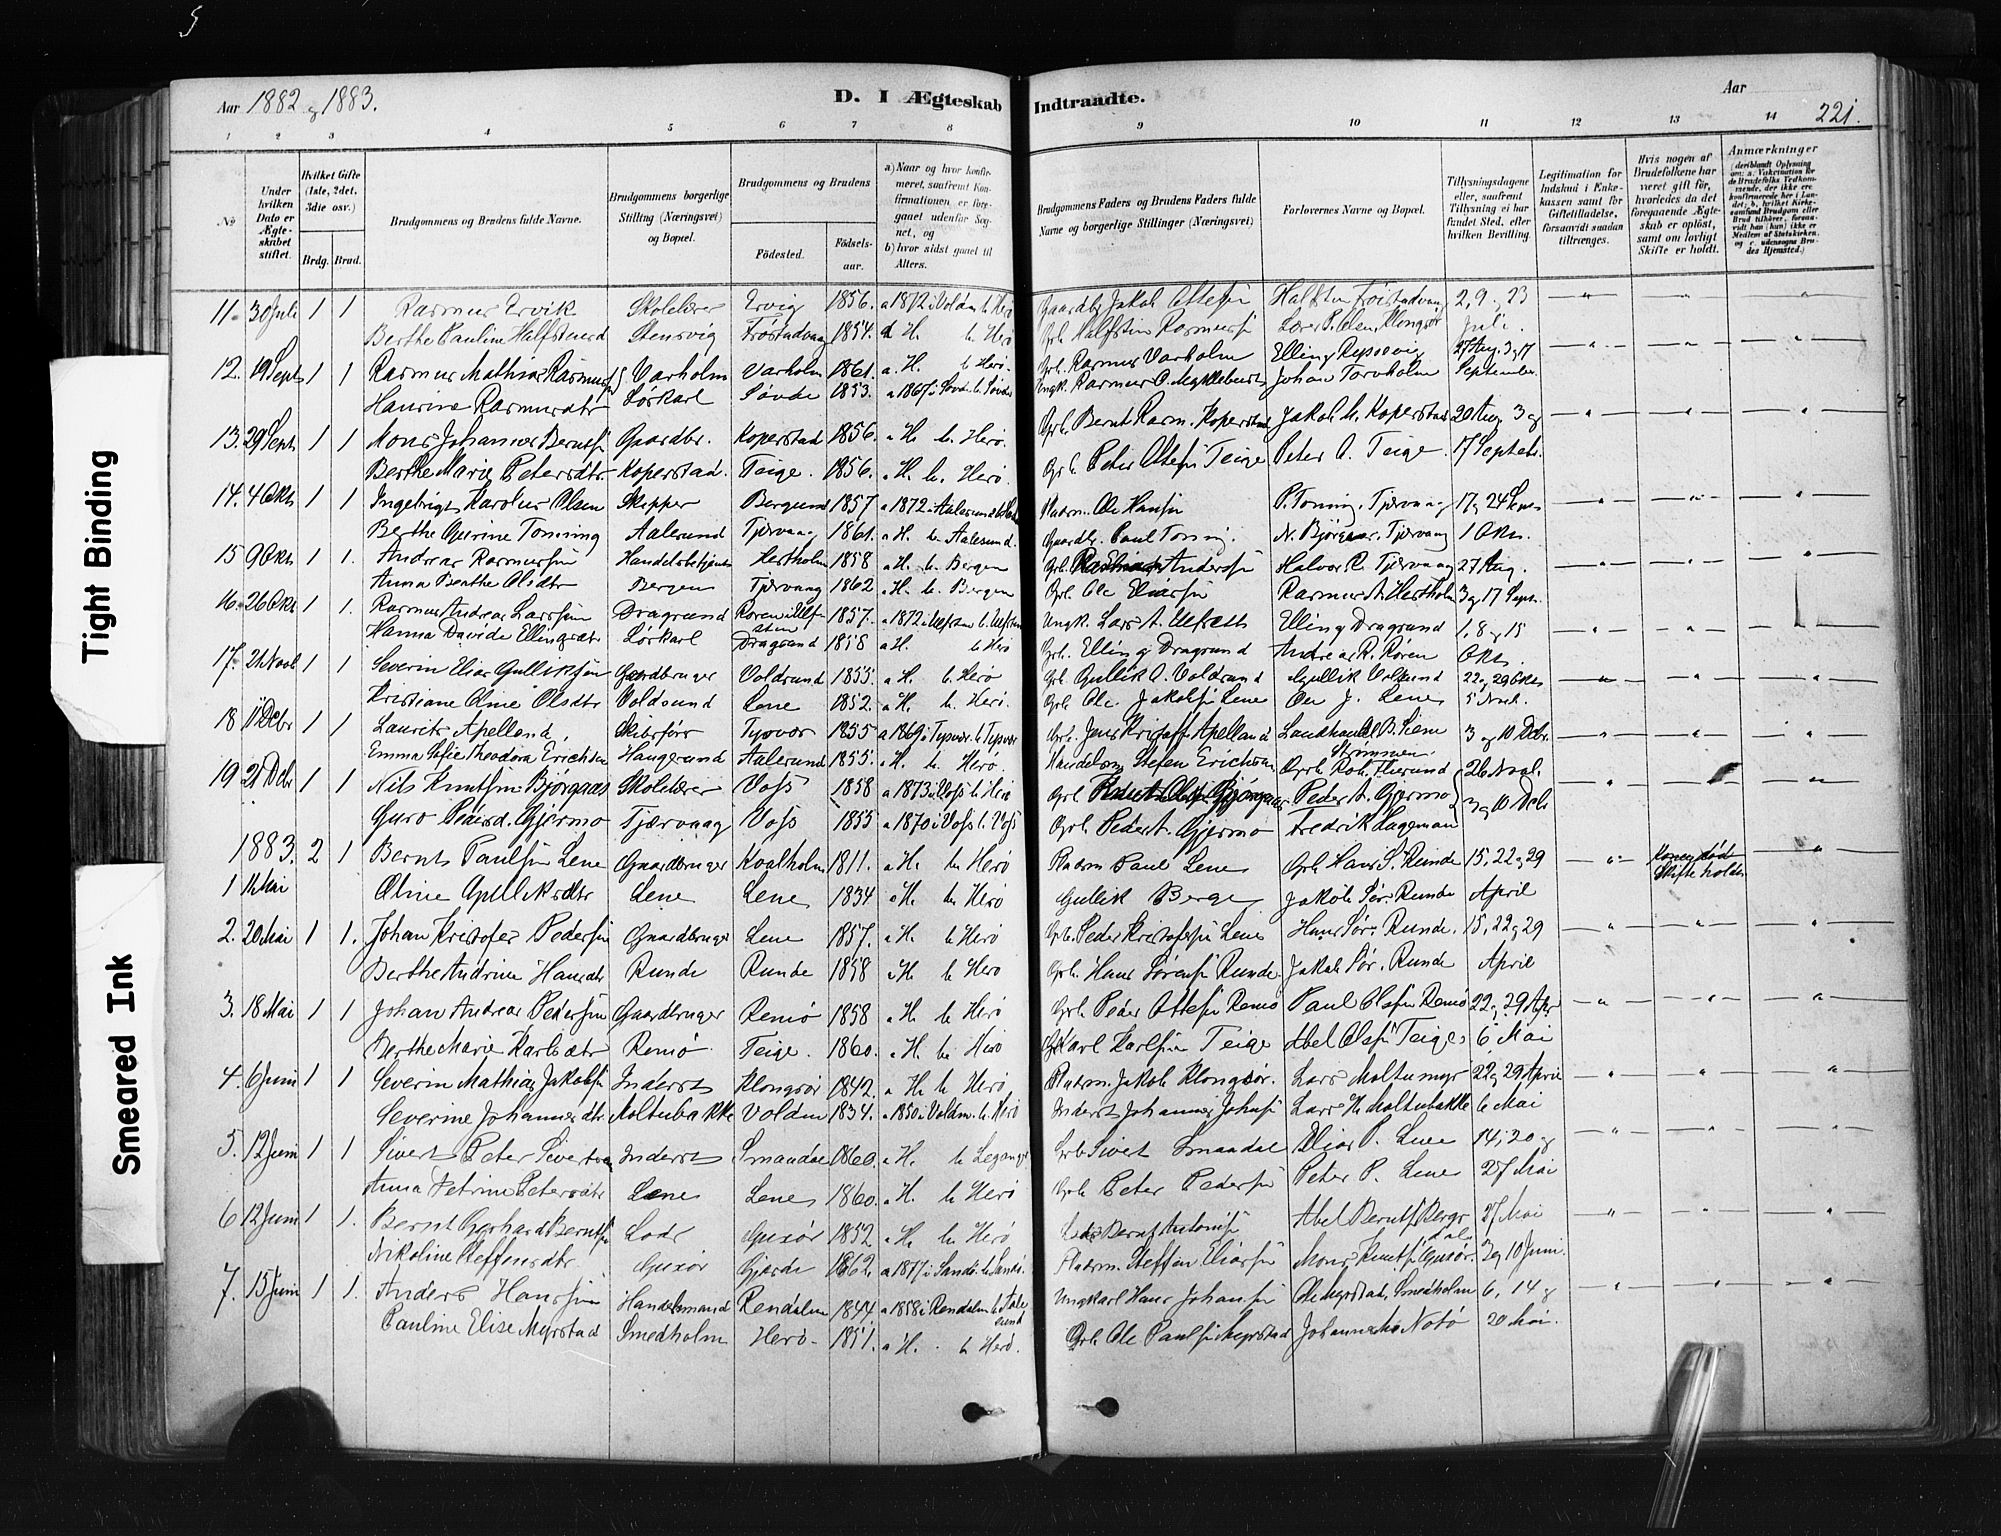 5
Tight Binding
Smeared Ink
Aar 1882 og 1883.
D. I Ægteskab Indtraadte.
Aar
221.
1 2 3 4 5 6 7 8 9 10 11 12 13 14
No
Under hvilken Dato er Ægteskabet stiftet.
Hvilket Gifte (1ste, 2det, 3die osv.)
Brdg. Brud.
Brudgommens og Brudens fulde Navne.
Brudgommens borgerlige Stilling (Næringsvei) og Bopæl.
Brudgommens og Brudens
Fødested.
Fødselsaar.
a) Naar og hvor konfirmeret, saafremt Konfirmationen er foregaaet udenfor Sognet, og
b) hvor sidst gaaet til Alters.
Brudgommens Faders og Brudens Faders fulde Navne og borgerlige Stillinger (Næringsvei)
Forlovernes Navne og Bopæl.
Tillysningsdagene eller, saafremt Tillysning ei har fundet Sted, efter hvilken Bevilling
Legitimation for Indskud i Enkekassen samt for Giftetilladelse, forsaavidt saadan tiltrænges.
Hvis nogen af Brudefolkene har været gift før, hvoriedes da det foregaaende Ægteskab er opløst, samt om lovligt Skifte er holdt.
Anmærkninger
11. 3 Juli 1 1 Rasmus Ervik Skolelærer Ervig 1856. a 1872 i Volden b Herø Gaardbr. Jakob Ottesen Halfsten Frøistadvaag 2, 9 og 23
Berthe Pauline Halfstensd Stensvig Frøstadvaag 1854. a H. b Herø Grb. Halfsten Rasmussen Lærer P. Olsen, Klongsør Juli.
12. 19 Septs 1 1 Rasmus Mathias Rasmussen Varholm Varholm 1861. a H. b Herø. Grb. Rasmus Varholm Elling 27 Aug. 3 og 17
Haurine Rasmusdtr Løskarl Søvde 1853. a 1867 i Søvde b Søvde Ungk. Rasmus O. Myklebust Johan Torvholm September.
13. 29 Septs 1 1 Mons Johannes Berntsen Gaardbr. Koperstad 1856. a H. b. Herø. Grb. Bernt Rasm. Koperstad Jakob M. Koperstad 20 Aug 3 og
Berthe Marie Petersdtr. Koperstad. Teige. 1856. a H. b. Herø. Grb. Peter Ottesen Teige Peter O. Teige. 17 Septebr.
14. 4 Okt 1 1 Ingebrigt Karolus Olsen Skipper Bergsund 1857 a 1872 i Aalesund Husm. Ole Hansen P. Tonning, Tjørvaag 17 og 24 Septs
Berthe Gurine Tonning Aalesund Tjørvaag 1861. a H. b. Aalesund. Gaardb. Paul Toning. N. Bjørgaas, Tjørvaag 1 Okt.
15 9 Okt 1 1. Andreas Rasmussen Handelsbetjent Hestholm 1858 a H. b. Bergen Grb. Andersen Halvor R. Tjørvaag 27 Aug.
Anna Berthe Olsdtr Bergen Tjørvaag 1862 a H. b. Bergen Grb. Ole Eliassen Rasmus A. Hestholm 3 og 17 Sept.
16. 26 Okt 1 1. Rasmus Andreas Larssen Dragsund Røren i Ulfsten 1857. a 1872 i Ulfsten b Ulfsten Ungk. Lars A. Elling Dragsund 1, 8 og 15
Hanna Davida Ellingsdtr Løskarl Dragsund 1858 a H. b Herø Grb. Elling Dragsund Andreas R. Røren Okt.
17. 21 Novb 1 1 Severin Elias Gulliksen Gaardbruger Voldsund 1855. a H. b Herø Grb. Gullik A. Voldsund Gullik Voldsund 22 og 29 Okt
Kristiane Oline Olsdtr Voldsund Lene 1852. a H. b. Herø. Grb. Ole Jakobsen Lene J. Lene 5 Novb.
18 11 Decbr 1 1 Laurits Apelland, Skibsfører Tysvær 1855 a 1869 i Tysvær b Tysvær Grb. Jens Kristoff. Apelland Landhandl. B. Siem 3 og 10 Decbr.
Emma Sofie Theodora Erichsen Haugesund Aalesund 1855. a H. b. Herø. Handelsm. Stefen Erichsen Grb. Rob. Flusund Strømmen. 26 Novb.
19 21 Decbr 1 1 Nils Knutsen Bjørgaas Skolelærer Voss 1858 a 1873 i Voss b Herø Grb. Bjørgaas Peder A. Gjermo 3 og 10 Decb
Guro Pedersd. Gjermo Tjørvaag Voss 1855 a 1870 i Voss b. Voss Grb. Peder A. Gjermo Fredrik Hageman
1883. 2 1 Bernt Paulsen Lene Gaardbruger Kvalholm 1811. a H. b Herø Husm Paul Lene Grb Hans S. Runde 15, 22 og 29 Konen død
1 11 Mai Oline Gulliksdtr Lene Lene 1834 a H. b Herø Gullik Berge Jakob Sør. Runde April Skifte holdt.
2. 20 Mai 1 1. Johan Kristofer Pedersen Gaardbruger Lene 1857. a H. b Herø Grb. Peder Kristofersen Lene Hans Sør. Runde. 15, 22 og 29
Berthe Andrine Hansdtr Runde Runde 1858 a H. b Herø Grb. Hans Sørensen Runde Jakob Sør. Runde April
3. 18 Mai 1 1 Johan Andreas Pedersen Gaardbruger Remø 1858 a H. b Herø Grb. Peder Ottesen Remø Paul Olsen Remø 22 og 29 Apr
Berthe Marie Karlsdtr Remø Teige. 1860. a H. b. Herø Grb Karl Karlsen Teige Abel Olsen Teige 6 Mai
4. 6 Juni 1 1 Severin Mathias Jakobsen Inderst Klongsør 1842. a H. b Herø, Husm. Jakob Klongsør. Lars Moltumyr 22 og 29 April
Severine Johannesdtr. Moltubakke Volden 1834. a 1850 i Volden. b. Herø Inderst Johannes Johnsen Lars H. Moltubakke 6 Mai
5. 12 Juni 1 1 Sivert Peter Sivertsen Inderst Smaadal 1860. a H. b Leganger Grb Sivert Smaadal Elias P. Lene 14, 20 og
Anna Petrine Petersdtr Lene Lene 1860. a H. b Herø Grb. Peter Pedersen Peter P. Lene 27 Mai
6 12 Juni 1 1. Bernt Gerhard Berntsen Lods Gursør 1852. a H. b Herø Lods Bernt Antonsen Abel Berntsen Bergs 27 Mai
Nikoline Steffensdtr Gursør Gjærde 1862. a 1877 i Sandø. b Sandø. Husm. Steffen Eliassen Mons Knutsen Gursør. 3 og 10 Juni.
7. 15 Juni 1 1. Anders Hanssen Handelsmand Rendalen 1844. a 1858 i Rendalen b Aalesund Ungkarl Hans Johansen Ole Myrstad, Smedholm 6, 14 og
Pauline Elise Myrstad Smedholm Herø. 1851. a H. b Herø. Grb. Ole Paulsen Myrstad Johannes Notø 20 Mai.